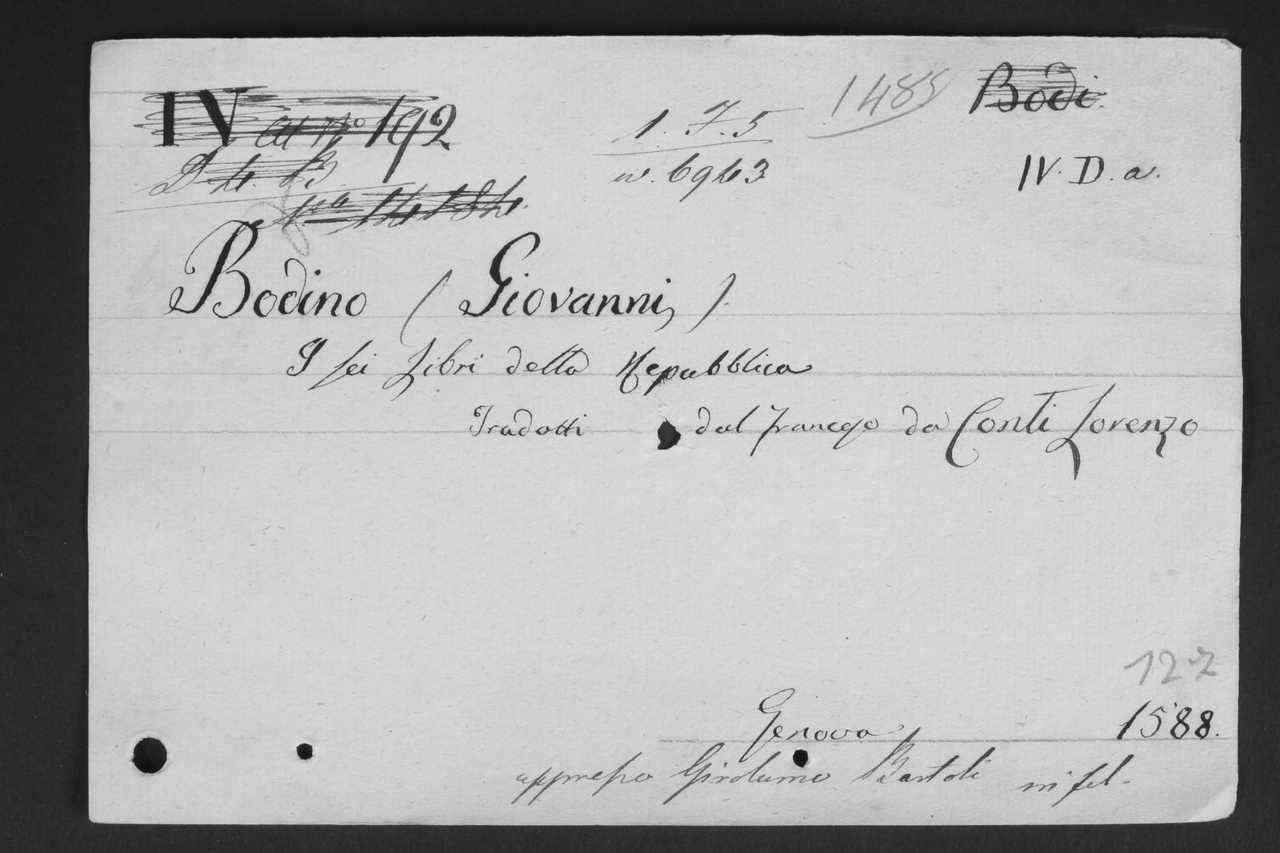 IV al nº 192
1. 7. 5
1485
Bodi
D. 4. B.
n. 6943
IV. D. a.
14184.
Bodino (Giovanni)
I sei Libri della Repubblica
Tradotti dal franceſe da Conti Lorenzo
122
Genova 1588.
appreſso Girolamo Bartoli in fol.